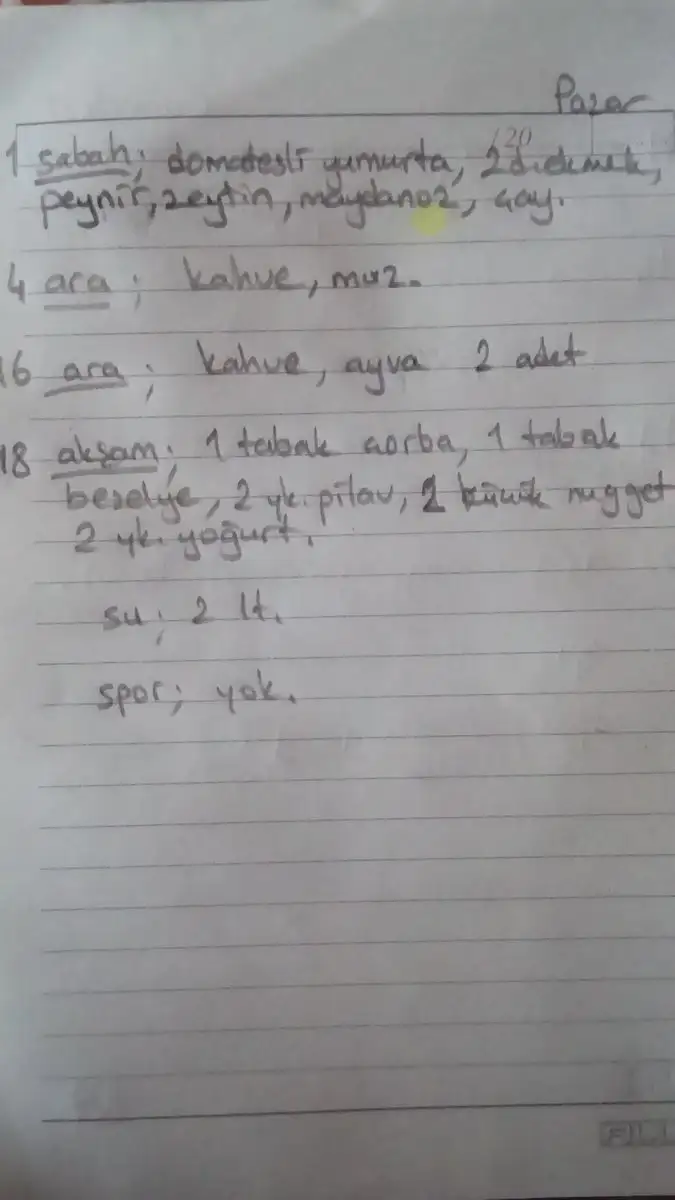 Pazar
/20
1 sabah; domatesli yumurta, 2 d. ekmek,
peynir, zeytin, maydanoz, çay.
4 ara; kahve, muz.
16 ara; kahve, ayva 2 adet
18 akşam; 1 tabak çorba, 1 tabak
bezelye, 2 yk. pilav, 2 küçük nugget
2 yk. yoğurt.
su; 2 lt.
spor; yok.